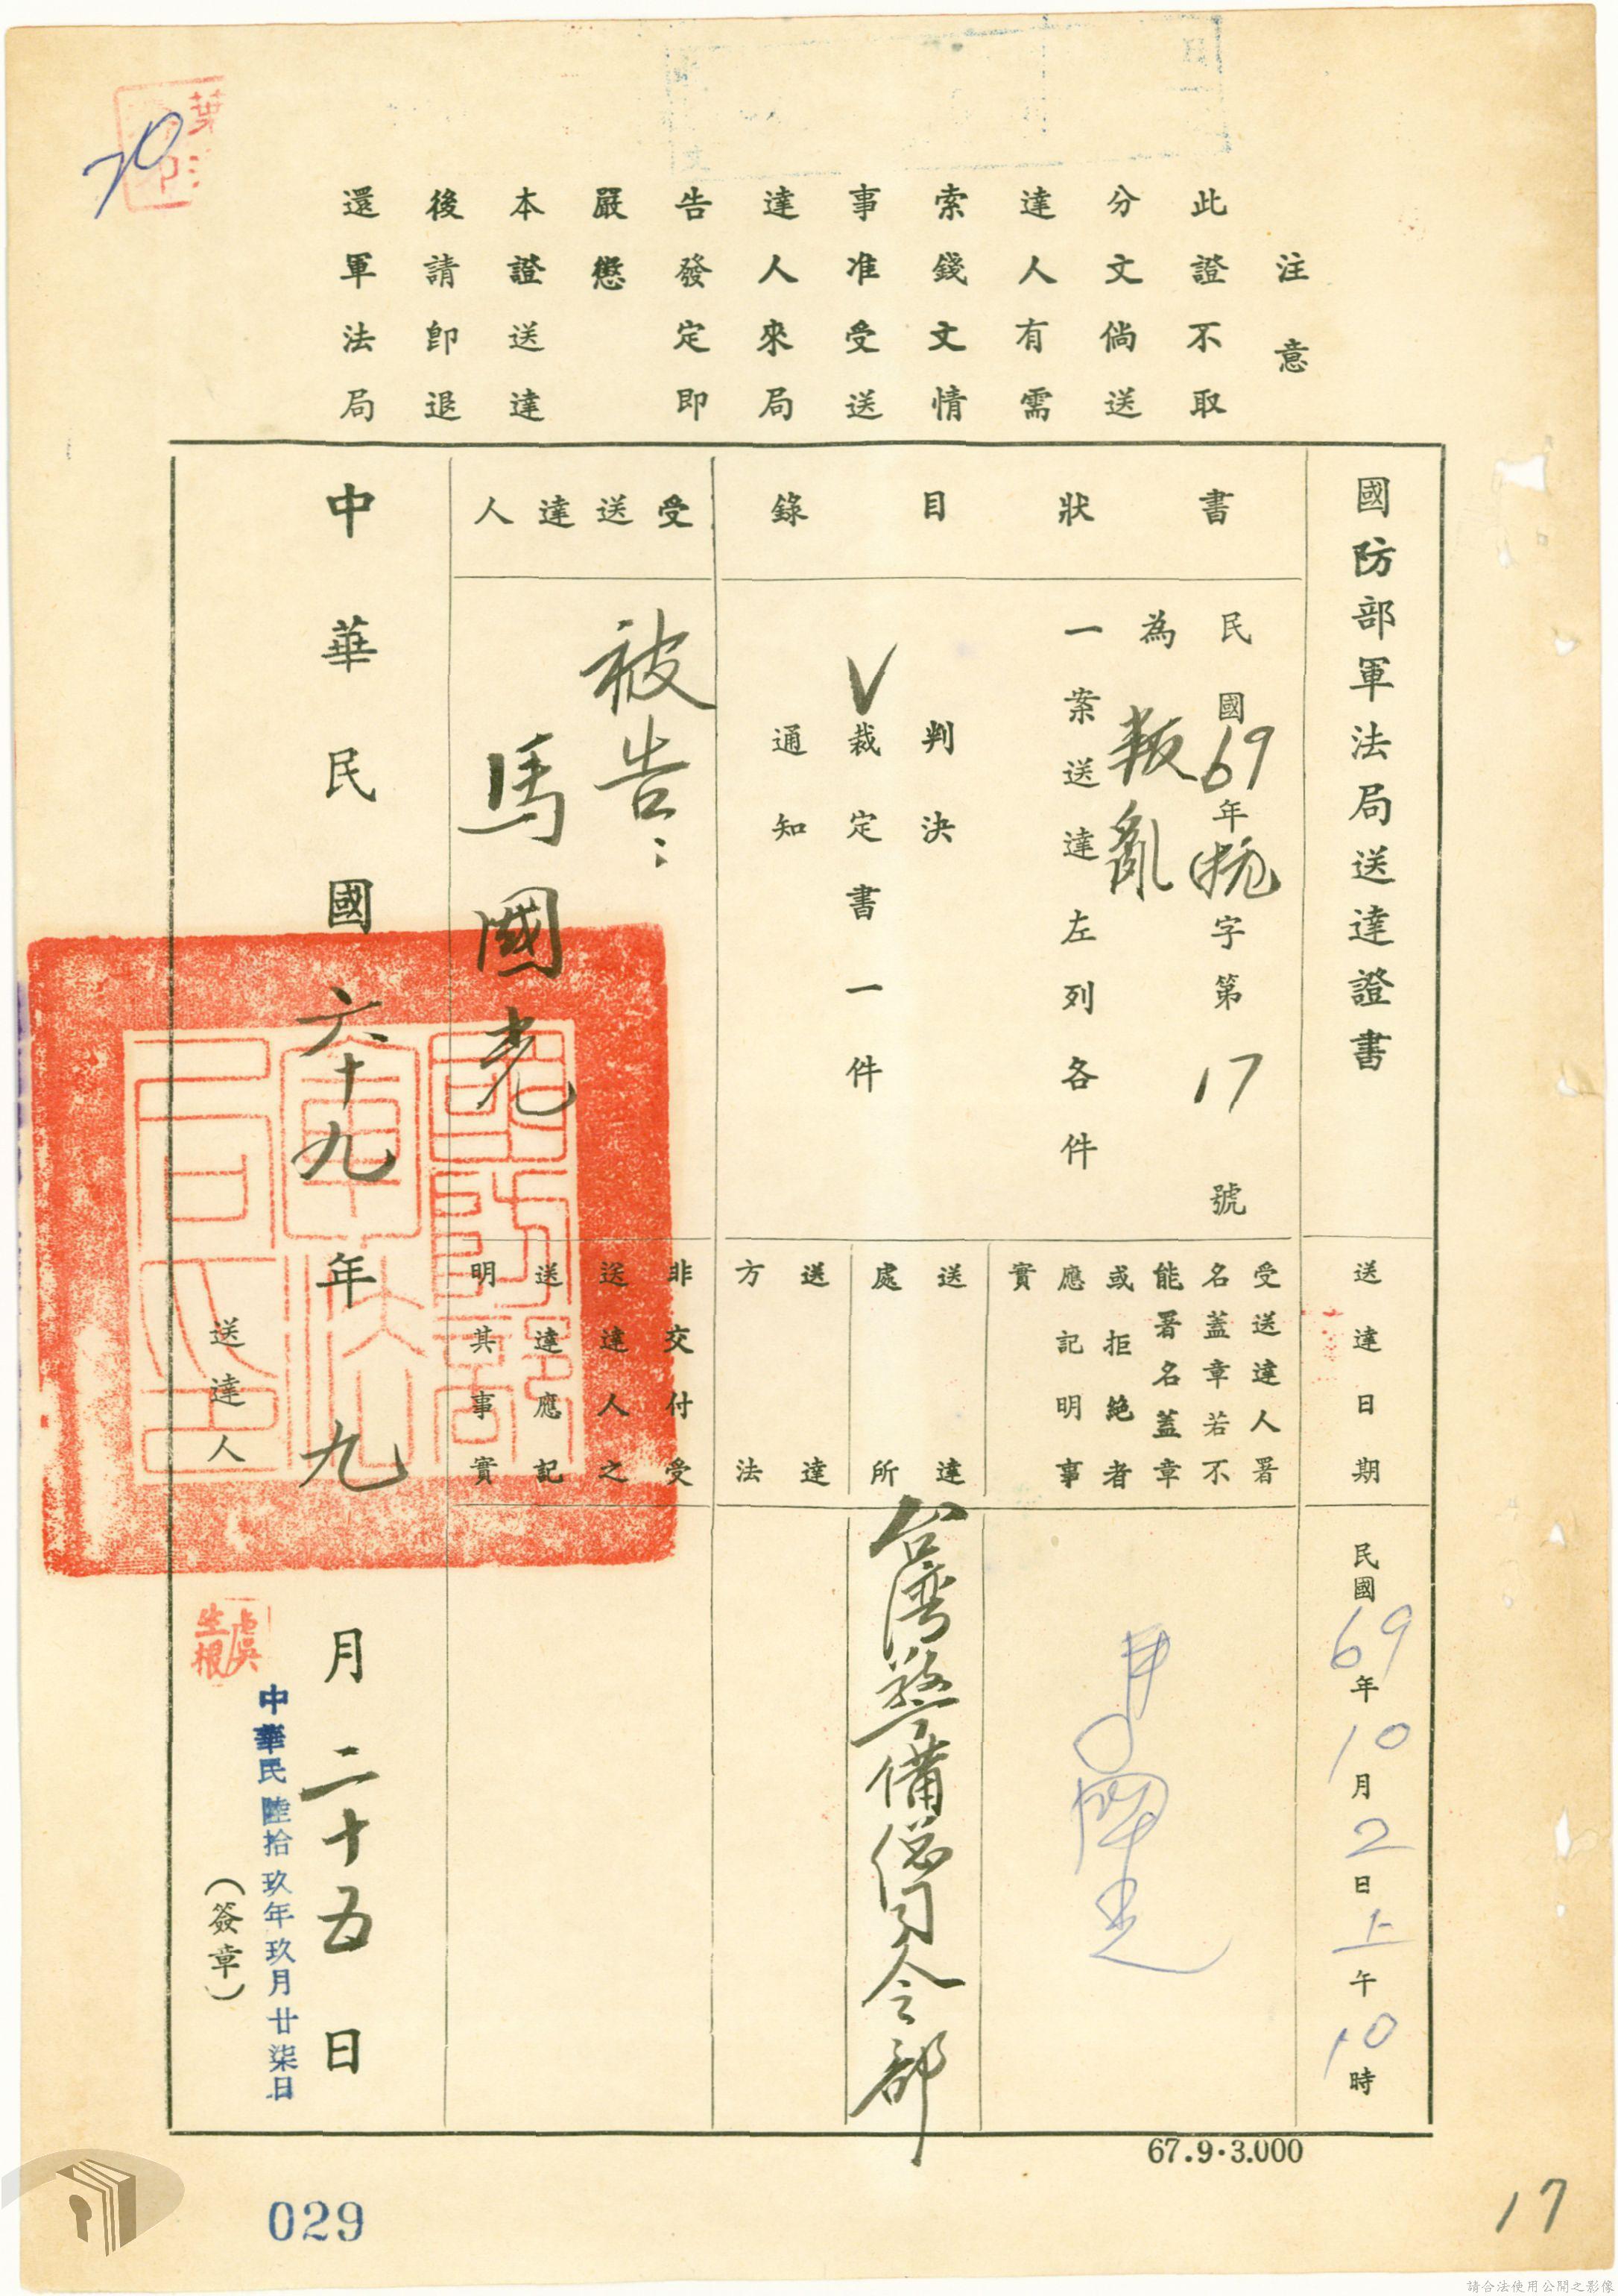 注意
此證不取
分文倘送
達人有需
索錢文情
事准受送
達人來局
告發定即
嚴懲
本證送達
後請卽退
還軍法局
70
國防部軍法局送達證書
送達日期
民國69年10月2日上午10時
書狀目錄
民國69年抗字第17號
為叛亂
一案送達左列各件
判決
V裁定書一件
通知
受送達人署
名蓋章若不
能署名蓋章
或拒絕者
應記明事
實
馬國光
送達
處所
台湾警備總司令部
送達
方法
受送達人
被告：
馬國光
非交付受
送達人之
送達應記
明其事實
中華民國六十九年九月二十五日
送達人
虞生根
中華民陸拾玖年玖月廿柒日
（簽章）
67.9.3.000
029
17
請合法使用公開之影像